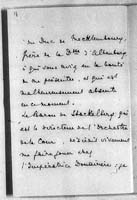 au Duc de Mecklembourg,
frère de la Dsse d'Altenbourg
à qui vous avez eu la bonté
de me présenter, et qui est
malheureusement absente
en ce moment.
Le Baron de Stackelberg, qui
est le directeur de l'Orchestre
de la Cour
me faire jouer chez
l'Impératrice Douairière; je